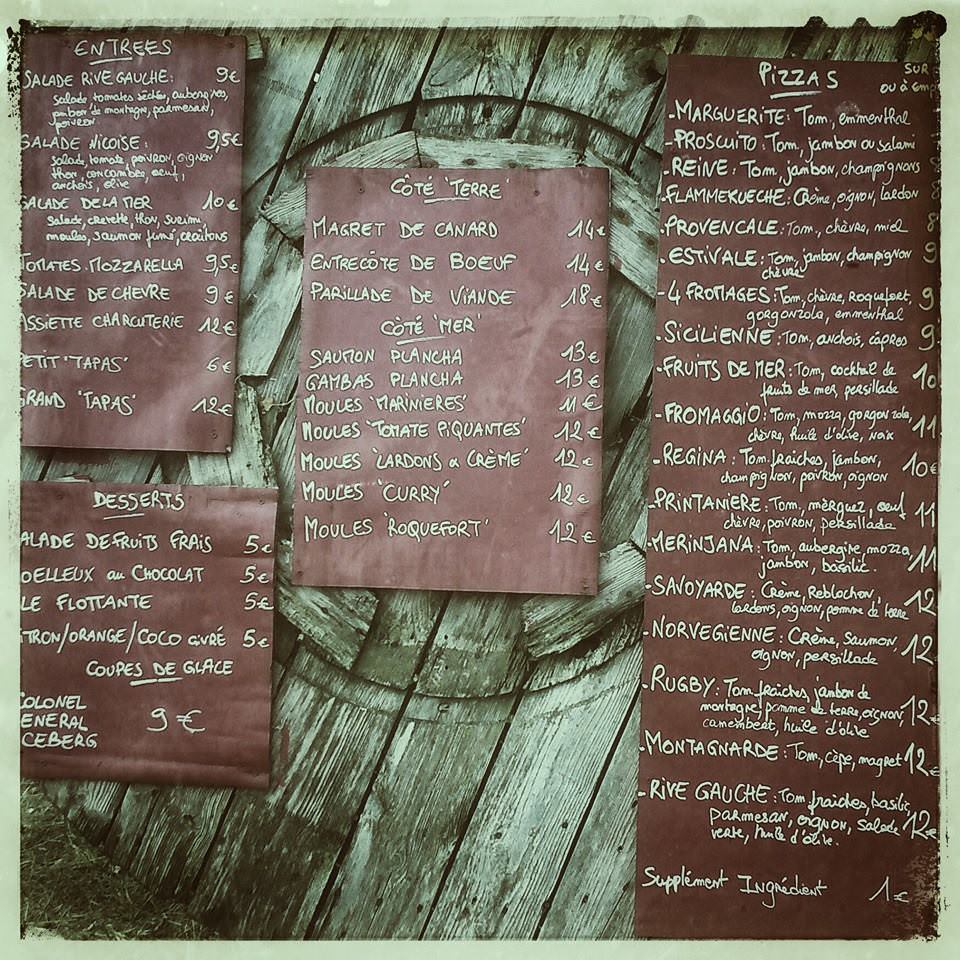 ENTREES
SALADE RIVE GAUCHE: 9€
Salade tomates sèches, aubergines,
jambon de montagne, parmesan,
poivron
SALADE NICOISE: 9,5€
salade, tomate, poivron, oignon
thon, concombre, oeuf,
anchois, olive
SALADE DE LA MER 10€
Salade, crevette, thon, surimi
moules, saumon fumé, croûtons
TOMATES MOZZARELLA 9,5€
SALADE DE CHEVRE 9€
ASSIETTE CHARCUTERIE 12€
PETIT 'TAPAS' 6€
GRAND 'TAPAS' 12€
DESSERTS
ALADE DE FRUITS FRAIS 5€
OELLEUX au CHOCOLAT 5€
LE FLOTTANTE 5€
TRON/ORANGE/COCO GIVRÉ 5€
COUPES DE GLACE
COLONEL
ENERAL 9€
CEBERG
CÔTÉ 'TERRE'
MAGRET DE CANARD 14€
ENTRECÔTE DE BOEUF 14€
PARILLADE DE VIANDE 18€
CÔTÉ 'MER'
SAUMON PLANCHA 13€
GAMBAS PLANCHA 13€
MOULES 'MARINIERES' 11€
MOULES 'TOMATE PIQUANTES' 12€
MOULES 'LARDONS & CRÈME' 12€
MOULES 'CURRY' 12€
MOULES 'ROQUEFORT' 12€
PIZZAS
SUR
ou à emp
-MARGUERITE: Tom, emmenthal
-PROSCUITO: Tom, jambon ou salami
-REINE: Tom, jambon, champignons
-FLAMMEKUECHE: Crème, oignon, lardon
-PROVENCALE: Tom, chèvre, miel 8
-ESTIVALE: Tom, jambon, champignon 9
chèvre
-4 FROMAGES: Tom, chèvre, roquefort, 9
gorgonzola, emmenthal
-SICILIENNE: Tom, anchois, câpres 9
-FRUITS DE MER: Tom, cocktail de 10
fruits de mer, persillade
-FROMAGGIO: Tom, mozza, gorgonzola, 11
chèvre, huile d'olive, noix
-REGINA: Tom fraiches, jambon, 10€
champignon, poivron, oignon
-PRINTANIERE: Tom, mèrguez, oeuf 11
chèvre, poivron, persillade
-MERINJANA: Tom, aubergine, mozza, 11
jambon, basilic.
-SAVOYARDE: Crème, Reblochon, 12
lardons, oignon, pomme de terre
-NORVEGIENNE: Crème, saumon, 12
oignon, persillade
-RUGBY: Tom fraiches, jambon de
montagne, pomme de terre, oignon 12€
camembert, huile d'olive
-MONTAGNARDE: Tom, cèpe, magret 12€
-RIVE GAUCHE: Tom fraiches, basilic,
parmesan, oignon, salade 12€
verte, huile d'olive.
Supplément Ingrédient 1€